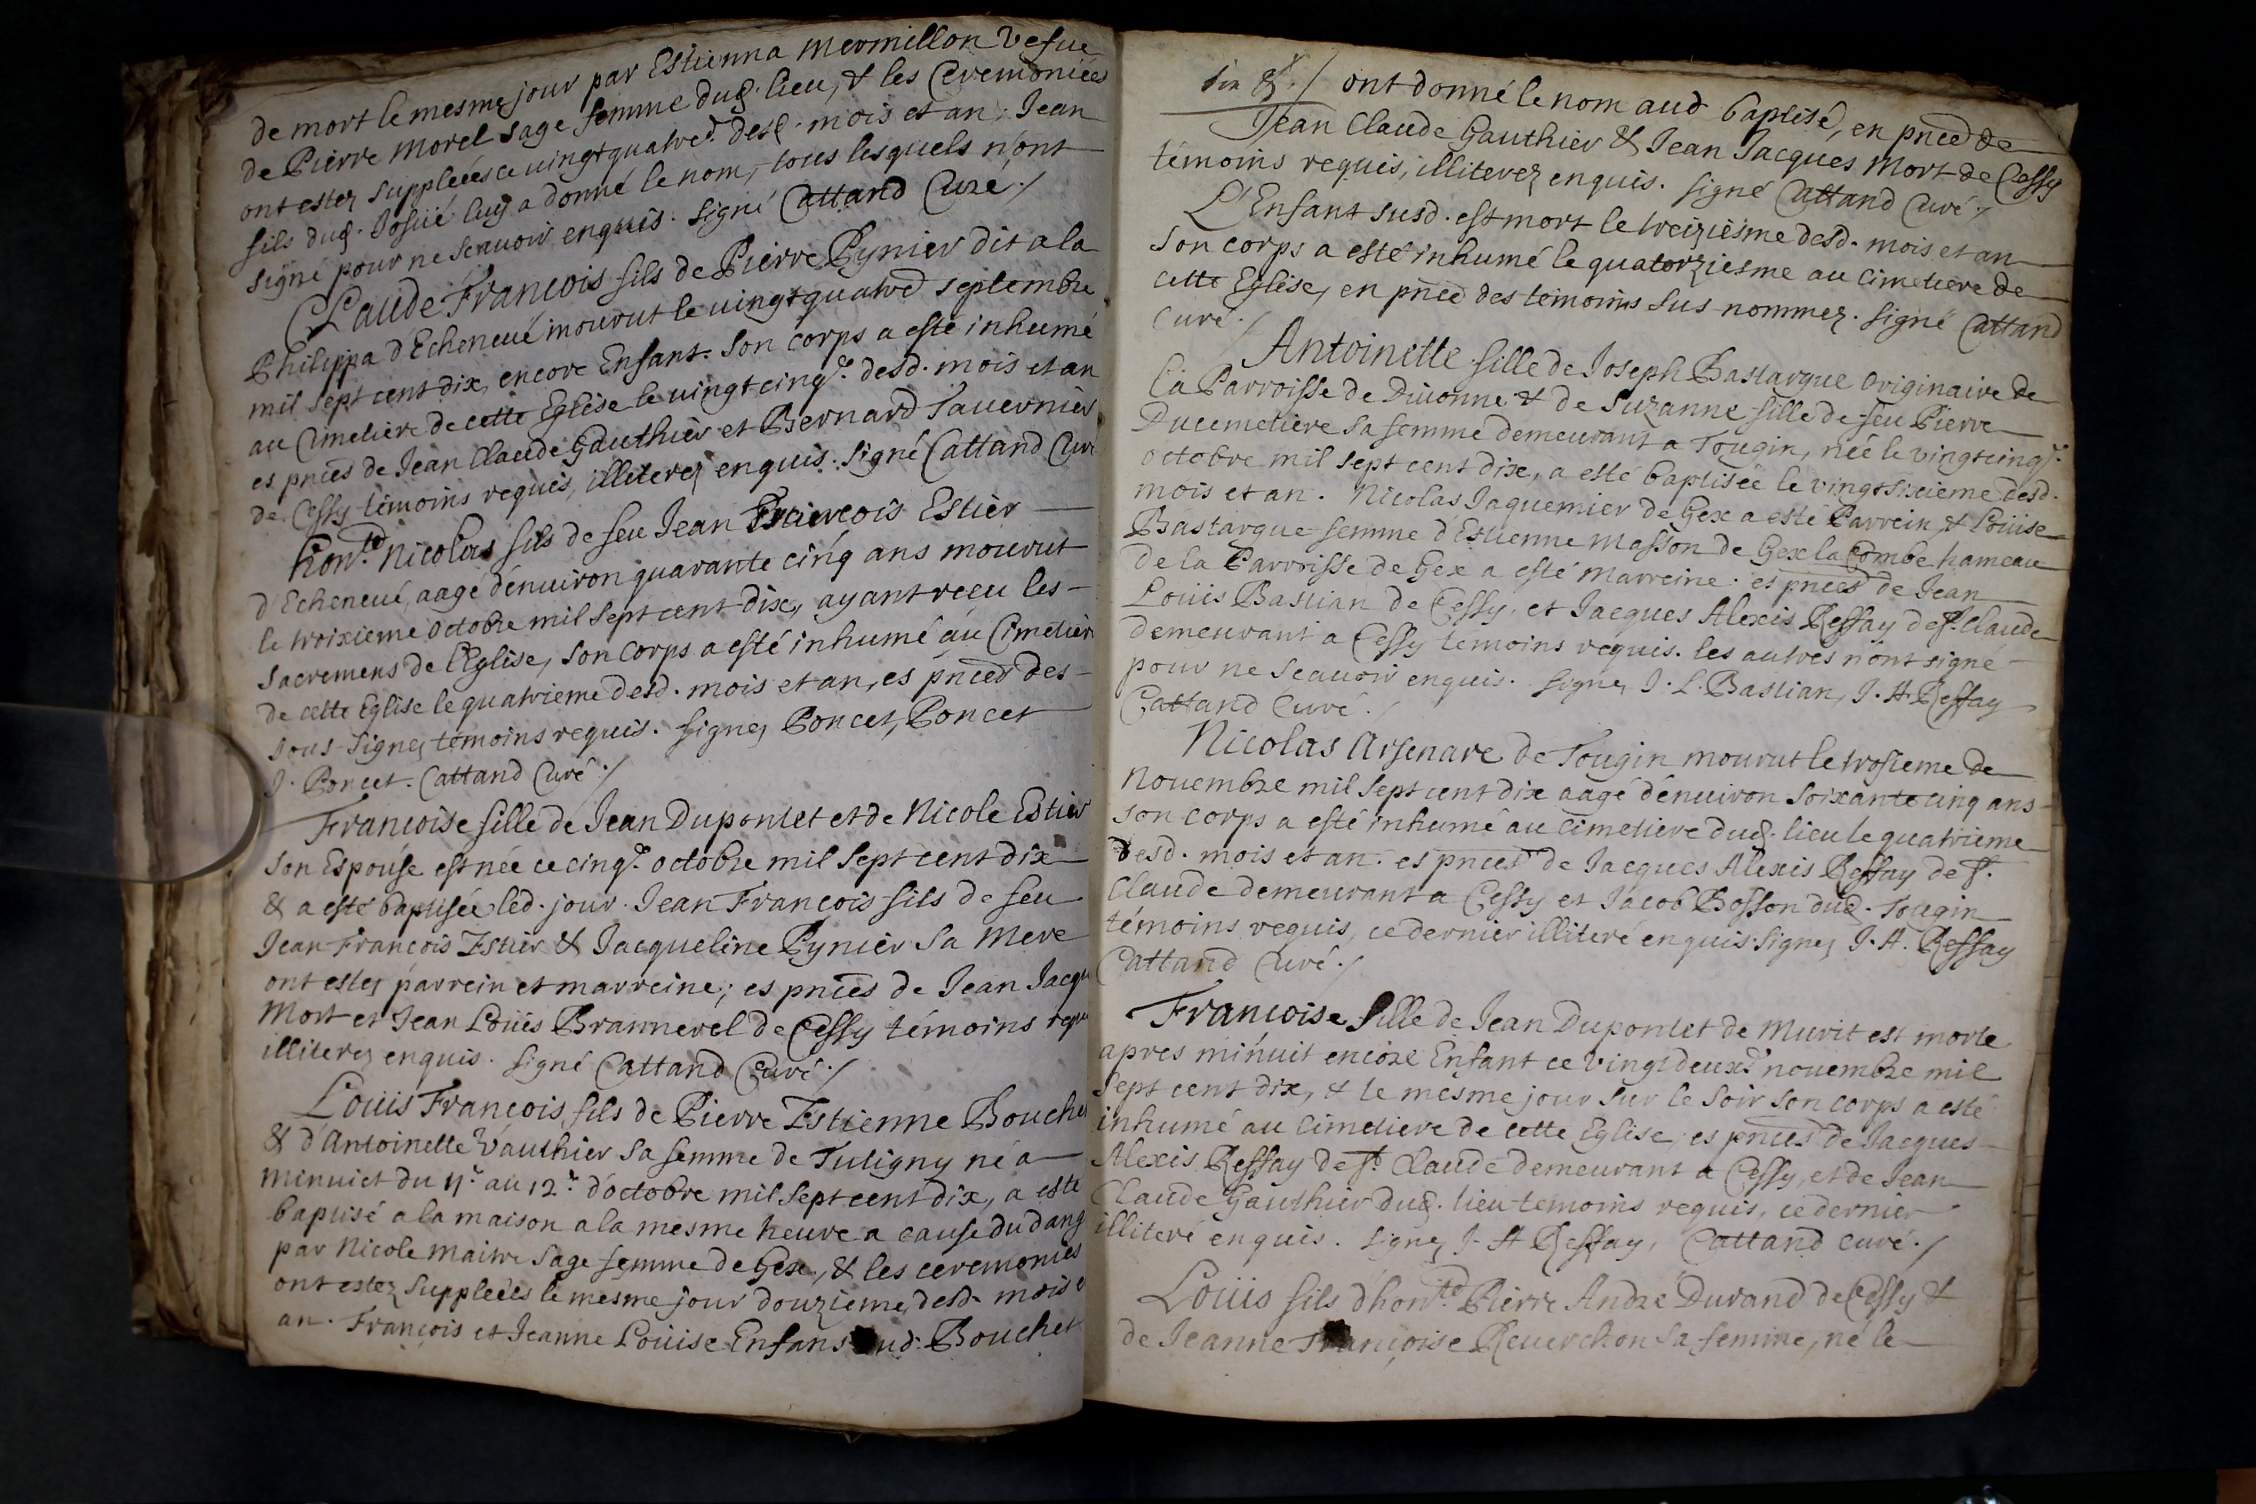 de mort le mesme jour par Estienna Mermillon vefue
de Pierre Morel sage femme dud. lieu, & les Ceremoniées
ont estez suppleées ce vingtquatre.e desd. mois et an. Jean
fils dud. Josüé luy a donné le nom, tous lesquels n'ont
signé pour ne scauoir enquis. signé Cattand Curé ./
Claude François fils de Pierre Pynier dit a la
Philippa d'Echeneué mourut le vingtquatre.e septembre
mil sept cent dix, encore Enfant. son corps a esté inhumé
au Cimetiere de cette Eglise le vingtcinq.e desd. mois et an
es pnces de Jean Claude Gauthier et Bernard Tauernier
de Cessy témoins requis, illiterez enquis. signé Cattand Curé
hon.ble Nicolas fils de feu Jean François Estier
d'Echeneué, aagé d'enuiron quarante cinq ans mourut
le troixieme octobre mil sept cent dix, ayant reçu les
sacremens de l'Eglise, son corps a esté inhumé au Cimetier
de cette Eglise le quatrieme desd. mois et an, es pnces des
sous-signez témoins requis. signez Poncet, Poncet
J. Poncet. Cattand Curé ./
Francoise fille de Jean Dupontet et de Nicole Estier
son Espouse est née ce cinq.e octobre mil sept cent dix
& a esté baptisée led. jour. Jean François fils de feu
Jean François Estier & Jacqueline Pynier sa Mere
ont estez parrein et marreine; es pnces de Jean Jacqu
Mort et Jean Loüis Brannerel de Cessy témoins requ
illiterez enquis. signé Cattand Curé ./
Loüis François fils de Pierre Estienne Bouchet
& d'Antoinette Vauthier sa femme de Tutigny né a
minuict du 11.e au 12.e d'octobre mil sept cent dix, a esté
baptisé a la maison a la mesme heure a cause du dang
par Nicole Maitre sage femme de Gex, & les ceremonies
ont estez suppleées le mesme jour douzieme desd. mois e
an. François et Jeanne Loüise Enfans dud. Bouchet
dix &. / ont donné le nom aud. baptisé, en pnce de
Jean Claude Gauthier & Jean Jacques Mort de Cessy
témoins requis, illiterez enquis. signé Cattand Curé ./
L'Enfant susd. est mort le treiziesme desd. mois et an
son corps a esté inhumé le quatorziesme au Cimetiere de
cette Eglise, en pnce des témoins sus nommez. signé Cattand
Curé ./
Antoinette fille de Joseph Bastarque originaire de
la Parroisse de Diuonne & de Suzanne fille de feu Pierre
Ducemetiere sa femme demeurant a Tougin, née le vingtcinq.e
octobre mil sept cent dix, a esté baptisée le vingtsixieme desd.
mois et an. Nicolas Jaquemier de Gex a esté Parrein & Loüise
Bastarque femme d'Estienne Masson de Gex la Combe hameau
de la Parroisse de Gex a esté marreine. es pnces de Jean
Louis Bastian de Cessy, et Jacques Alexis Reffay de St. Claude
demeurant a Cessy temoins requis. les autres n'ont signé
pour ne scauoir enquis. signez J. L. Bastian, J. A. Reffay
Cattand Curé ./
Nicolas Arsenare de Tougin mourut le trosieme de
nouembre mil sept cent dix aagé d'enuiron soixante cinq ans
son corps a esté inhumé au cimetiere dud. lieu le quatrieme
desd. mois et an. es pnces de Jacques Alexis Reffay de St.
Claude demeurant a Cessy et Jacob Bosson dud. Tougin
témoins requis, ce dernier illiteré enquis. signez J. A. Reffay
Cattand Curé ./
Francoise fille de Jean Dupontet de Murit est morte
apres minuit encore Enfant ce vingtdeux.e nouembre mil
sept cent dix, & le mesme jour sur le soir son corps a esté
inhumé au Cimetiere de cette Eglise, es pnces de Jacques
Alexis Reffay de St. Claude demeurant a Cessy, et de Jean
Claude Gauthier dud. lieu temoins requis, ce dernier
illiteré enquis. signez J. A Reffay, Cattand curé ./
Loüis fils d'hon.ble Pierre André Durand de Cessy &
de Jeanne Françoise Reuerchon sa femme, né le